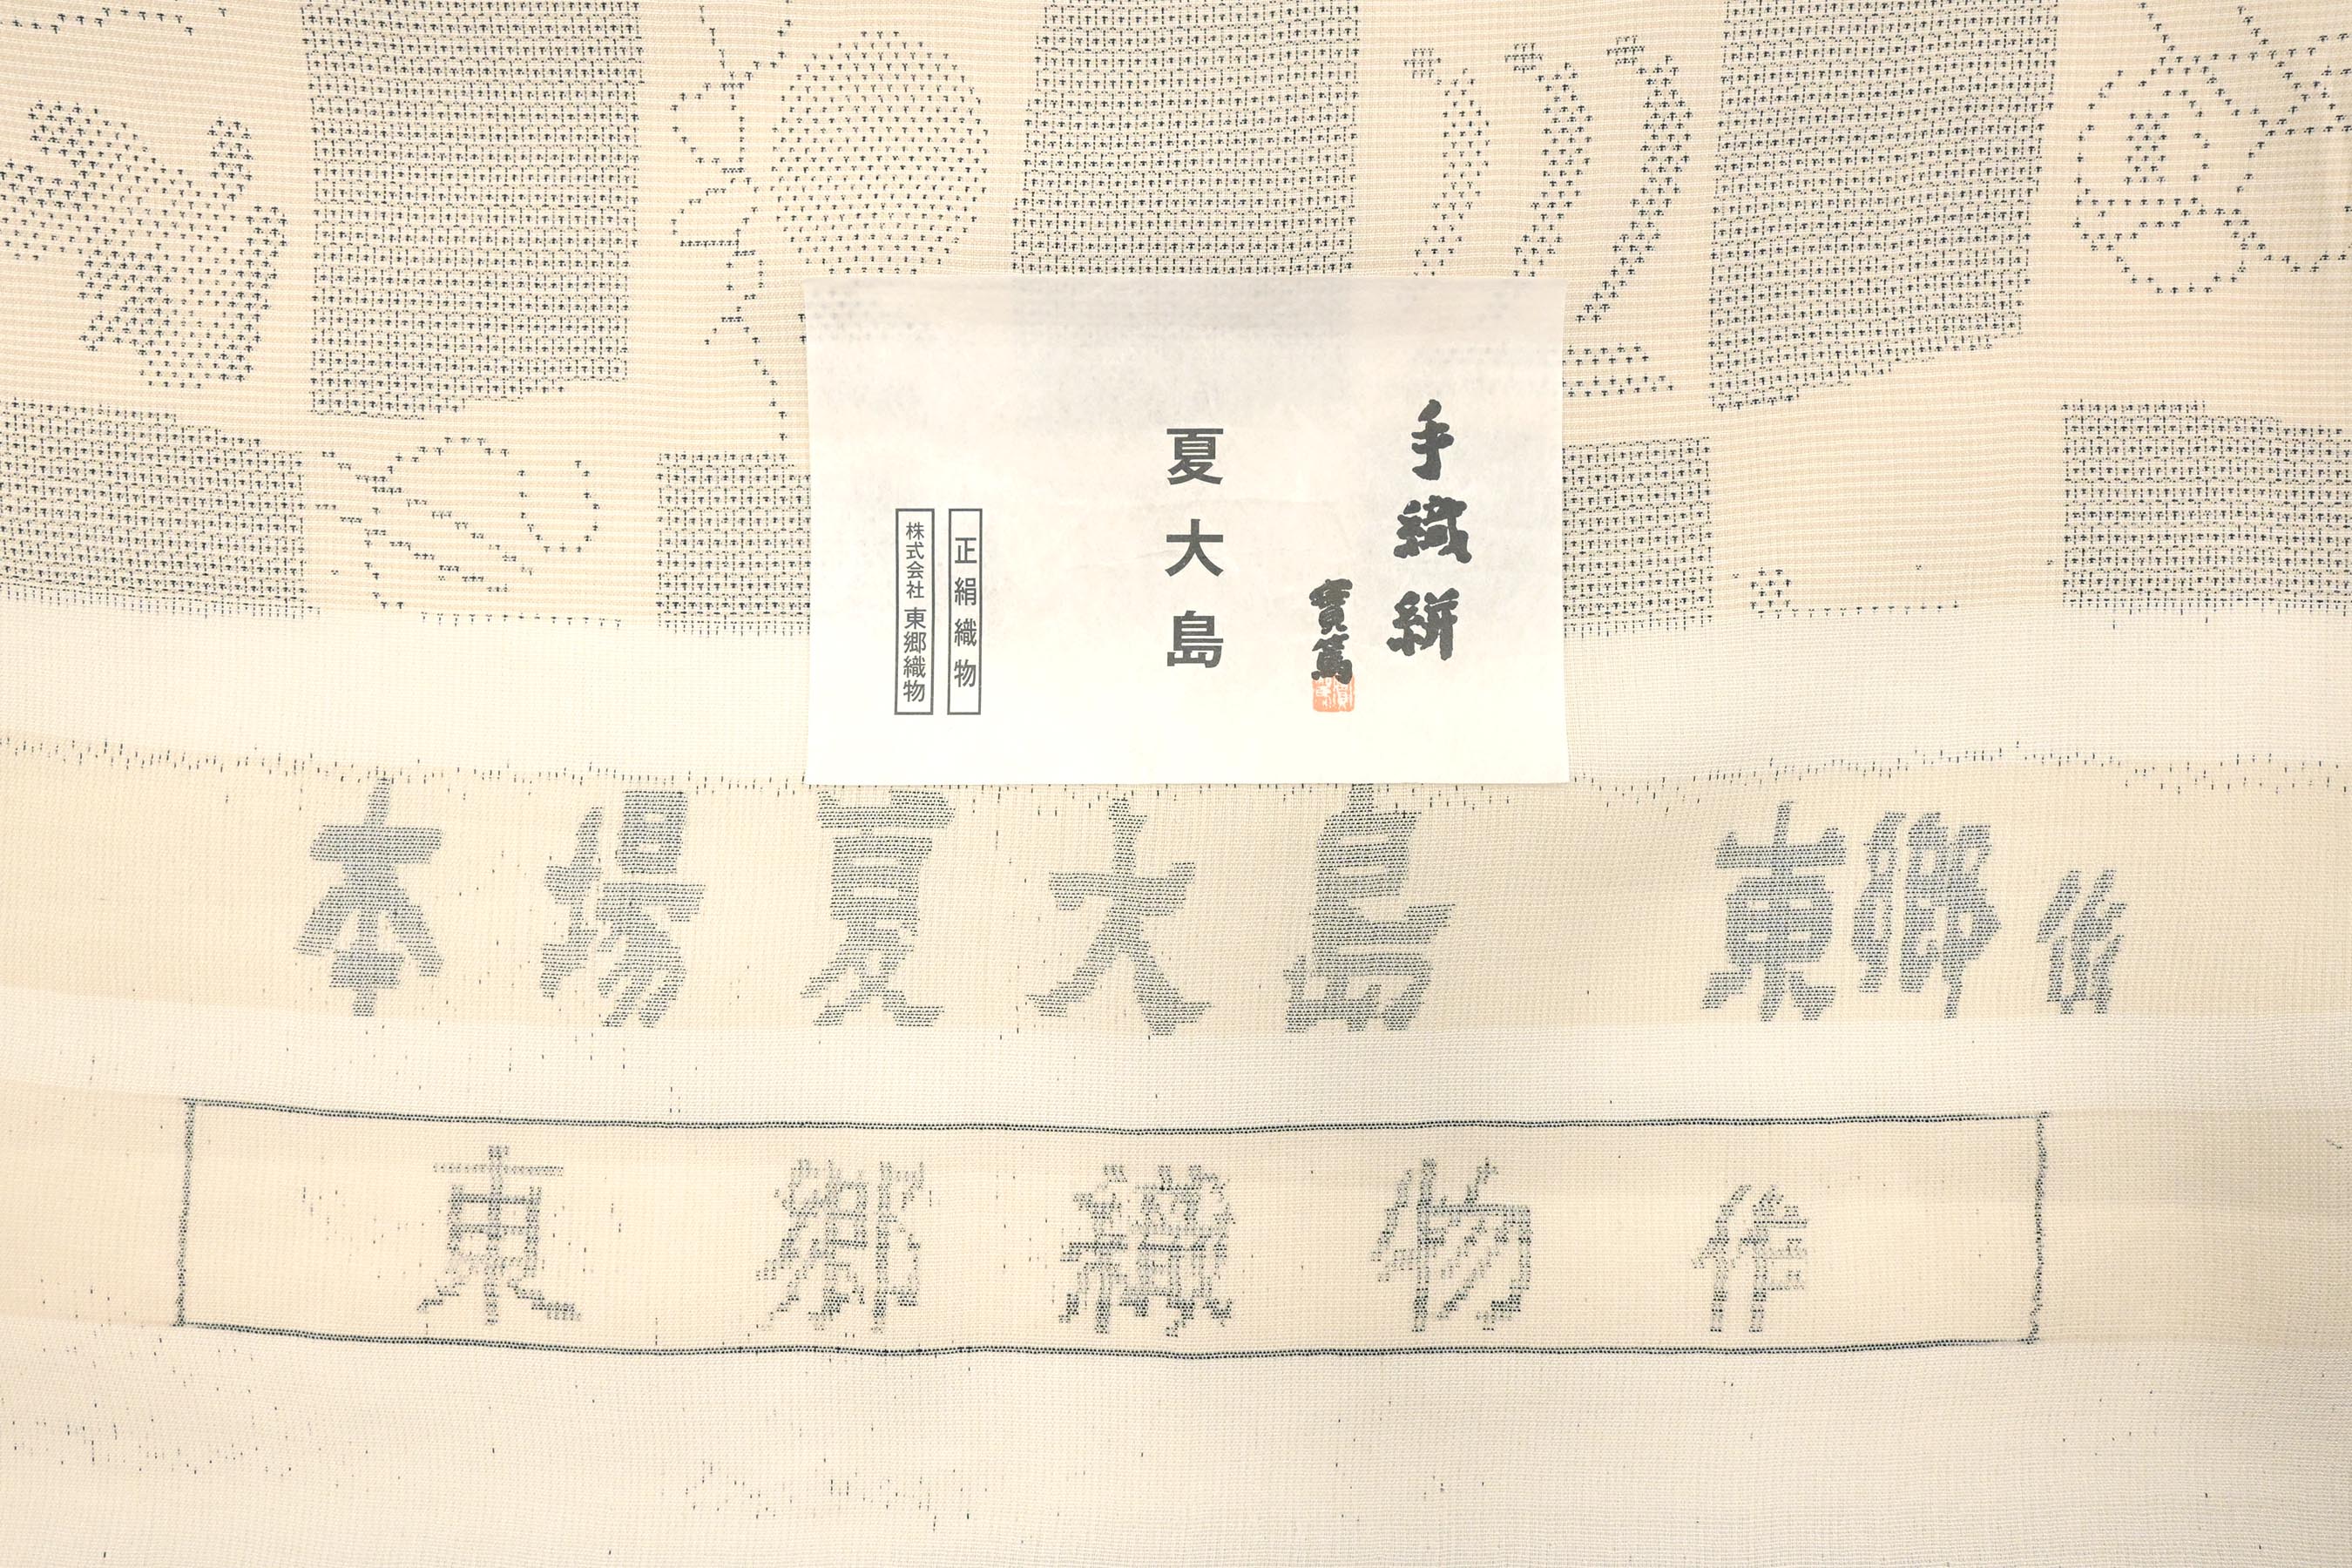 手織絣
實篤
夏大島
正絹織物
株式会社 東郷織物
本場夏大島 東郷作
東郷織物作